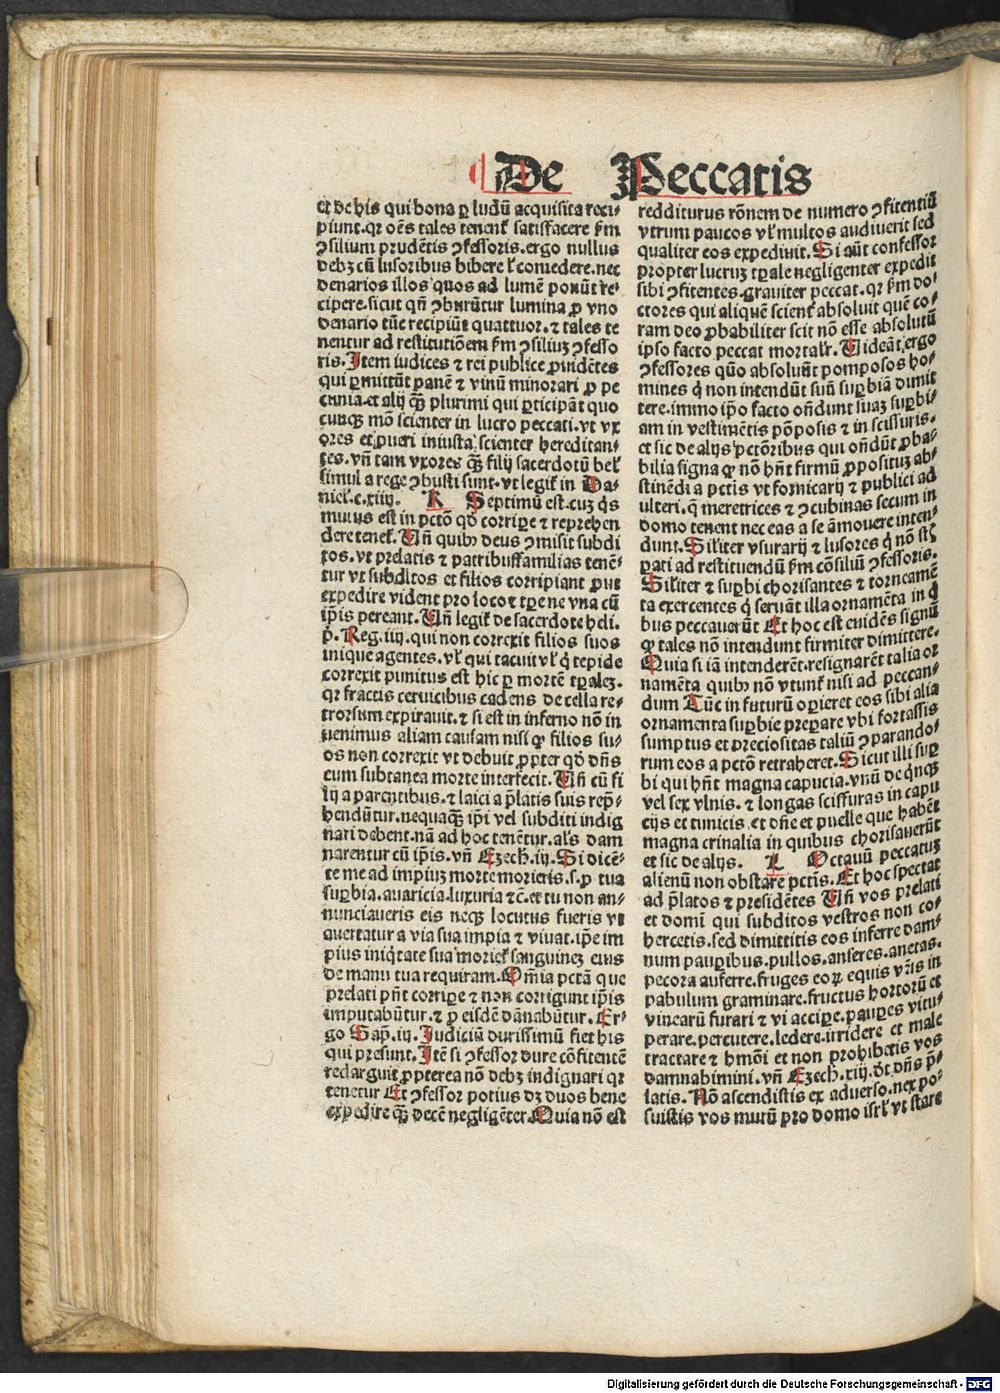 De Peccatis
et de his qui bona ꝑ ludū acquisita reci⸗
piunt.qꝛ oēs tales tenent̉ satisfacere ẜm
ꝯsilium prudētis ꝯfessoris.ergo nullus
debꝫ cū lusoribus bibere ł comedere.nec
denarios illos quos ad lumē ponūt re⸗
cipere.sicut qñ ꝯburūtur lumina ꝓ vno
denario tūc recipiūt quattuor.⁊ tales te
nentur ad restitutiōem ẜm ꝯsiliuꝫ ꝯfesso
ris.Item iudices ⁊ rei publice ꝓuidētes
qui ꝑmittūt panē ⁊ vinū minorari ꝓ pe
cunia.et alij qꝙ̄ plurimi qui ꝑticipāt quo
cunqꝫ mō scienter in lucro peccati.vt vx
ores et pueri iniusta scienter hereditan⸗
tes.vñ tam vxores qꝙ̄ filij sacerdotū beł
simul a rege ꝯbusti sunt.vt legit̉ in Da⸗
nieł.c.xiiij. K Septimū est.cuꝫ qͥs
mutus est in pctō qď corriꝑe ⁊ reprehen
dere tenet̉.Uñ quibꝰ deus ꝯmisit subdi
tos.vt prelatis ⁊ patribusfamilias tenē⸗
tur vt subditos et filios corripiant ꝓut
expedire vident pro loco ⁊ tꝑe ne vna cū
ip̄is pereant.Uñ legit̉ de sacerdote heli.
p̄.Reg.iiij.qui non correxit filios suos
inique agentes.vł qui tacuit vł qꝛ tepide
correxit punitus est hic ꝑ mortē tꝑaleꝫ.
qꝛ fractis ceruicibus cadens de cella re⸗
trorsum expirauit.⁊ si est in inferno nō in
uenimus aliam causam nisi ꝙ filios su⸗
os non correxit vt debuit ꝓpter qď dñs
eum subtanea morte interfecit.Uñ cū fi
lij a parentibus.⁊ laici a p̄latis suis rep̄⸗
hendūtur.nequaqꝫ ip̄i vel subditi indig
nari debent.nā ad hoc tenētur.als dam
narentur cū ip̄is.vñ Ezech.iij.Si dicē⸗
te me ad impiuꝫ morte morieris.s.ꝓ tua
suꝑbia.auaricia.luxuria ⁊c̄.et tu non an⸗
nunciaueris eis neqꝫ locutus fueris vt
auertatur a via sua impia ⁊ viuat.ip̄e im
pius iniqͥtate sua moriet̉ sanguineꝫ eius
de manu tua requiram.Om̄ia pctā que
prelati pn̄t corriꝑe ⁊ non corrigunt ip̄is
imputabūtur.⁊ ꝓ eisdē dānabūtur.Er⸗
go Sap̄.iij.Iudiciū durissimū fiet his
qui presunt.Itē si ꝯfessor dure cōfitentē
redarguit ꝓpterea nō debꝫ indignari qꝛ
tenetur Et ꝯfessor potius dꝫ duos bene
expedire qꝙ̄ decē negligēter.Quia nō est
redditurus rōnem de numero ꝯfitentiū
vtrum paucos vł multos audiuerit sed
qualiter eos expediuit.Si aūt confessor
propter lucruꝫ tꝑale negligenter expedit
sibi ꝯfitentes.grauiter peccat.qꝛ ẜm do⸗
ctores qui aliquē scient̉ absoluit quē co⸗
ram deo ꝓbabiliter scit nō esse absolutū
ipso facto peccat mortalr̉.Uideāt ergo
ꝯfessores quō absolunt pomposos ho⸗
mines qͥ non intendūt suū suꝑbiā dimit
tere.immo ip̄o facto oñdunt suaꝫ suꝑbi⸗
am in vestimētis pōposis ⁊ in scissuris.
et sic de alijs pctōribus qui oñdūt ꝓba⸗
bilia signa ꝙ nō hn̄t firmū ꝓpositūꝫ ab⸗
stinēdi a pctis vt fornicarij ⁊ publici ad
ulteri.qͥ meretrices ⁊ ꝯcubinas secum in
domo tenent nec eas a se āmouere inten⸗
dunt.Sil̉iter vsurarij ⁊ lusores qͥ nō st̄
ꝑati ad restituendū ẜm cōsiliū ꝯfessoris.
Sil̉iter ⁊ suꝑbi chorisantes ⁊ torneamē
ta exercentes qͥ seruāt illa ornamēta in qͥ
bus peccauerūt Et hoc est euidēs signū
ꝙ tales nō intendunt firmiter dimittere.
Quia si iā intenderēt.resignarēt talia or
namēta quibꝰ nō vtunt̉ nisi ad peccan⸗
dum Tūc in futurū oꝑieret eos sibi alia
ornamenta suꝑbie preparare vbi fortassis
sumptus et preciositas taliū ꝯparando⸗
rum eos a pctō retraheret.Sicut illi suꝑ
bi qui hn̄t magna capucia.vnū de qͥnqꝫ
vel sex vlnis.⁊ longas scissuras in capu
cijs et tunicis.et dñe et puelle que habēt
magna crinalia in quibus chorisauerūt
et sic de alijs. L Octauū peccatuꝫ
alienū non obstare pctīs.Et hoc spectat
ad p̄latos ⁊ presidētes Uñ vos prelati
et domī qui subditos vestros non co⸗
hercetis.sed dimittitis eos inferre dam⸗
num pauꝑibus.pullos.anseres.anetas.
pecora auferre.fruges eoꝝ equis vr̄is in
pabulum graminare.fructus hortorū et
vinearū furari ⁊ vi acciꝑe.pauꝑes vitu⸗
perare.percutere.ledere.irridere et male
tractare ⁊ hmōi et non prohibetis vos
damnabimini.vñ Ezech.xiij.dt̄ dñs p̄⸗
latis.Nō ascendistis ex aduerso.nec po⸗
suistis vos murū pro domo isrł vt stare
Digitalisierung gefördert durch die Deutsche Forschungsgemeinschaft - DFG